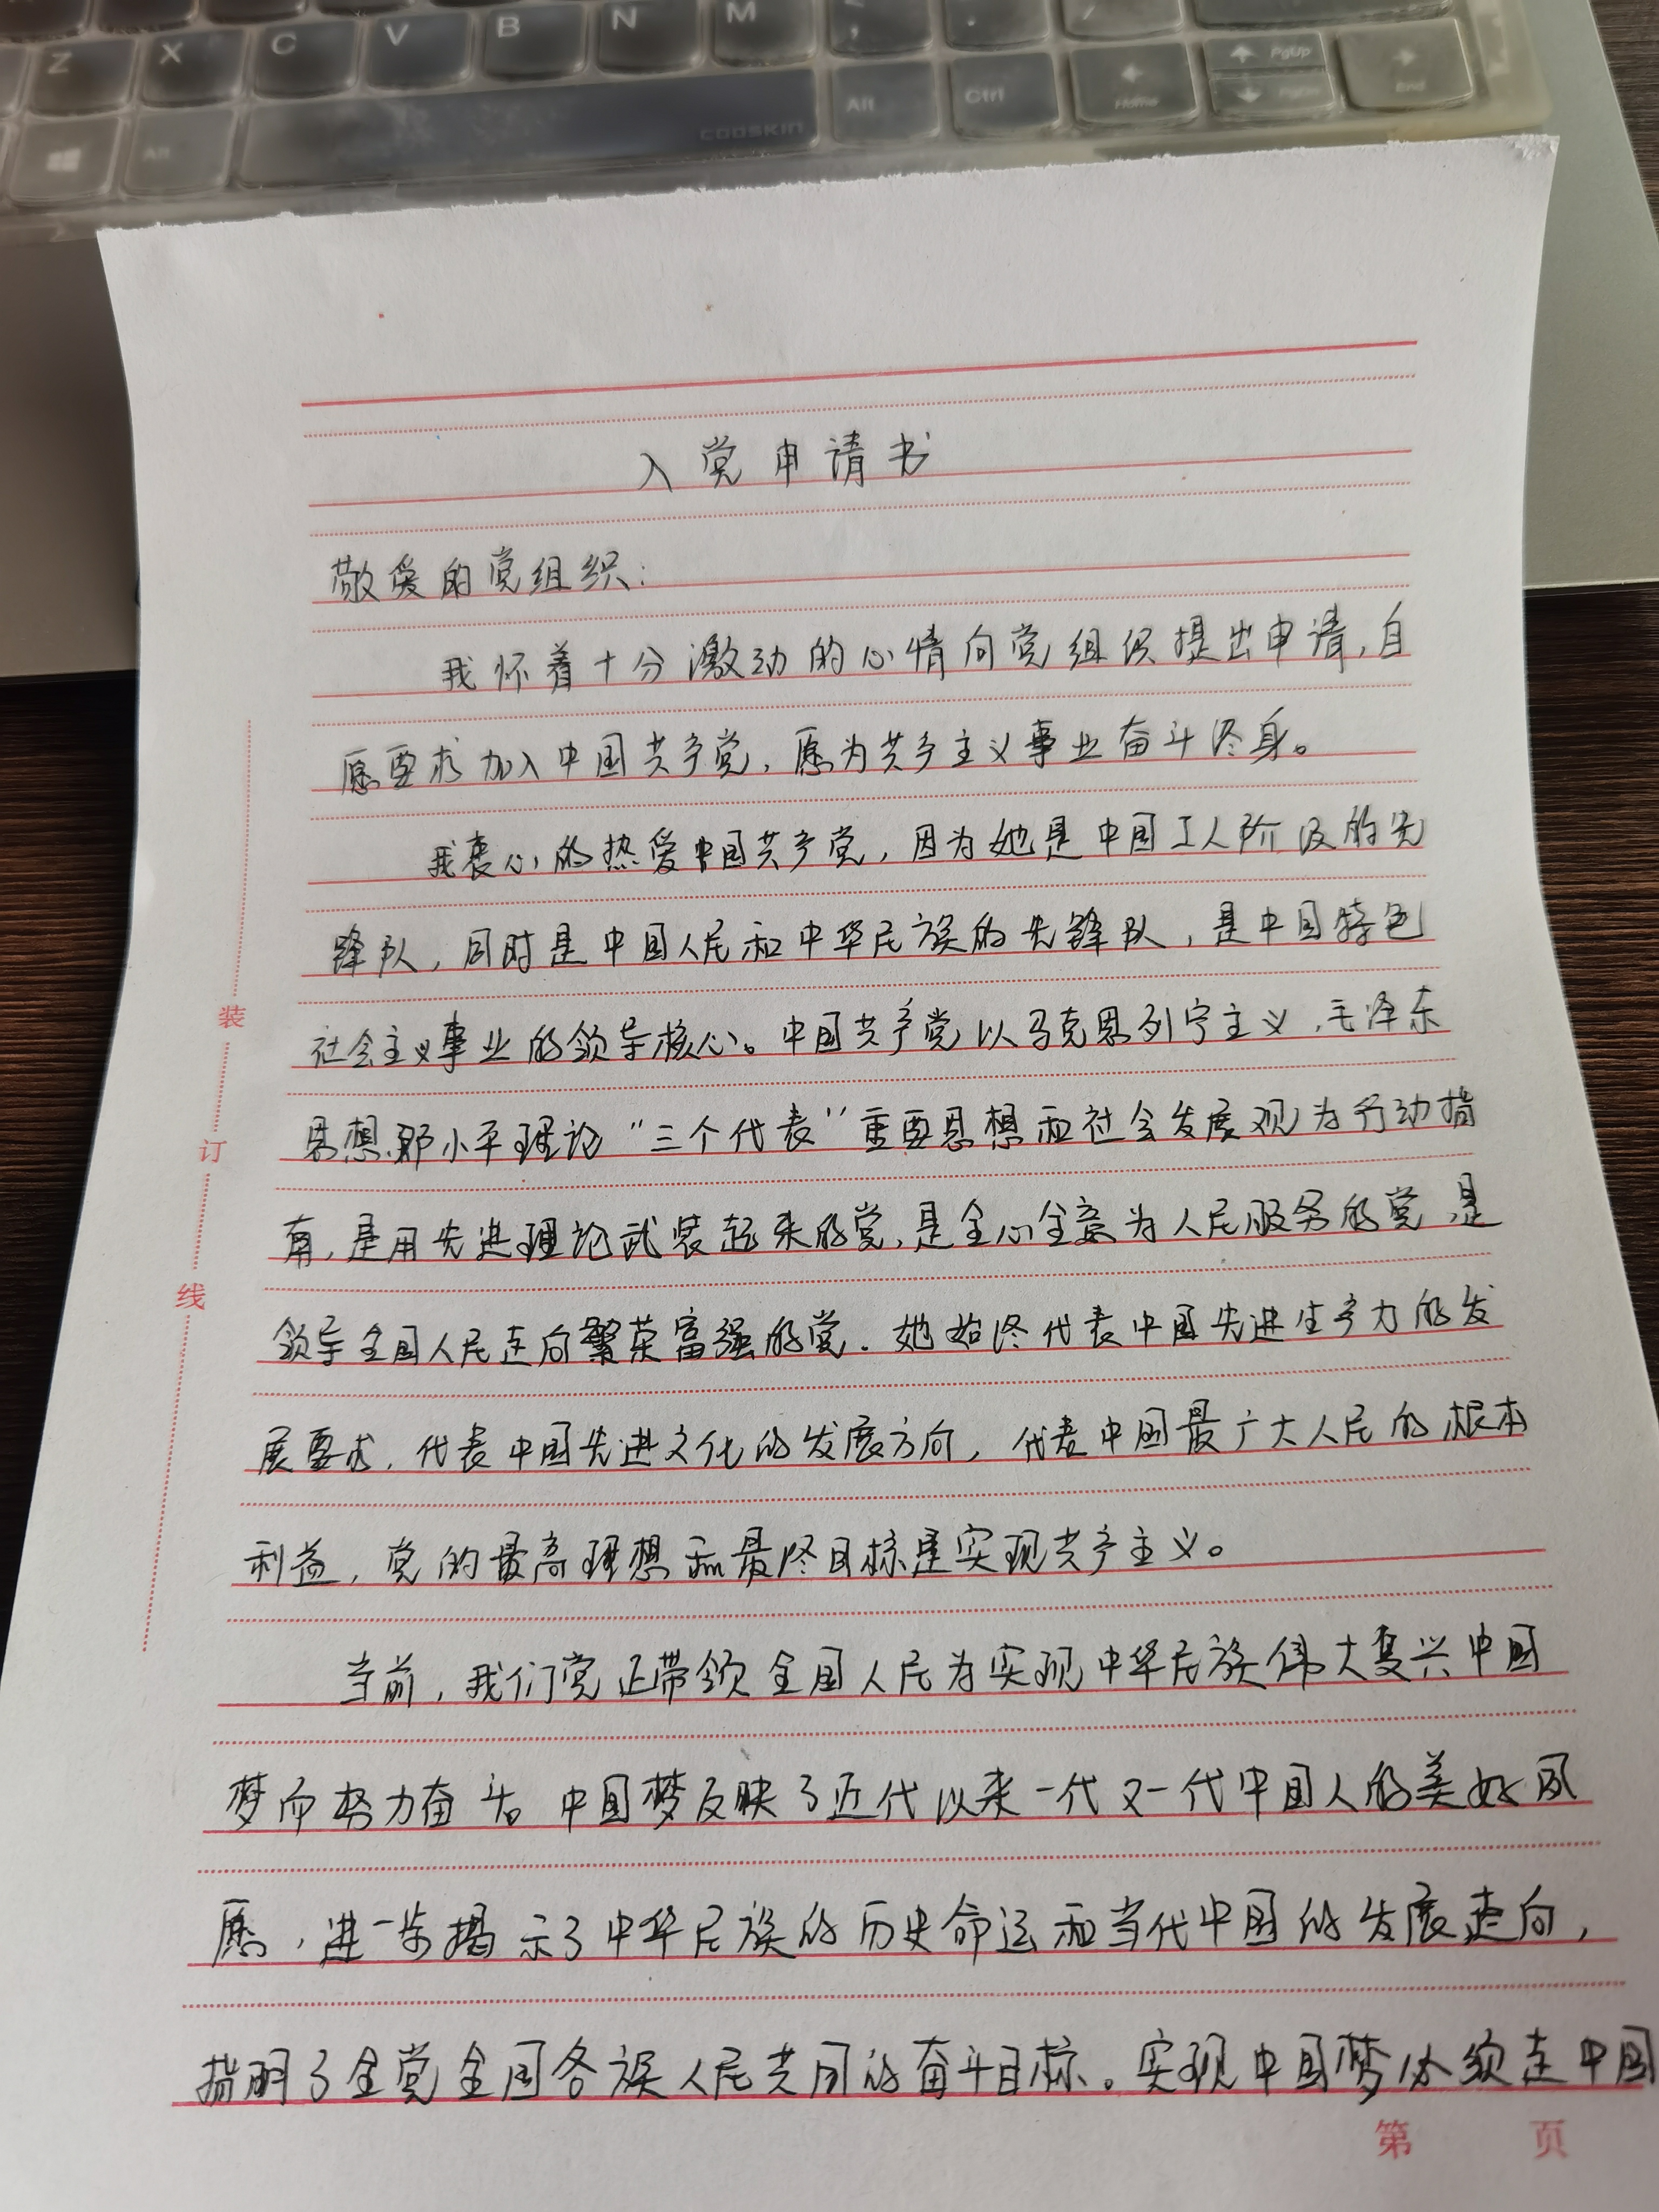 Z X C V B N M
Alt COOSKIN Alt Ctrl Home PgUp PgDn End
入党申请书
敬爱的党组织:
我怀着十分激动的心情向党组织提出申请,自
愿要求加入中国共产党,愿为共产主义事业奋斗终身。
我衷心的热爱中国共产党,因为她是中国工人阶级的先
锋队,同时是中国人民和中华民族的先锋队,是中国特色
社会主义事业的领导核心。中国共产党以马克思列宁主义、毛泽东
思想、邓小平理论“三个代表”重要思想和社会发展观为行动指
南,是用先进理论武装起来的党,是全心全意为人民服务的党,是
领导全国人民走向繁荣富强的党。她始终代表中国先进生产力的发
展要求,代表中国先进文化的发展方向,代表中国最广大人民的根本
利益,党的最高理想和最终目标是实现共产主义。
当前,我们党正带领全国人民为实现中华民族伟大复兴中国
梦而努力奋斗。中国梦反映了近代以来一代又一代中国人的美好夙
愿,进一步揭示了中华民族的历史命运和当代中国的发展走向,
指明了全党全国各族人民共同的奋斗目标。实现中国梦必须走中国
装
订
线
第 页